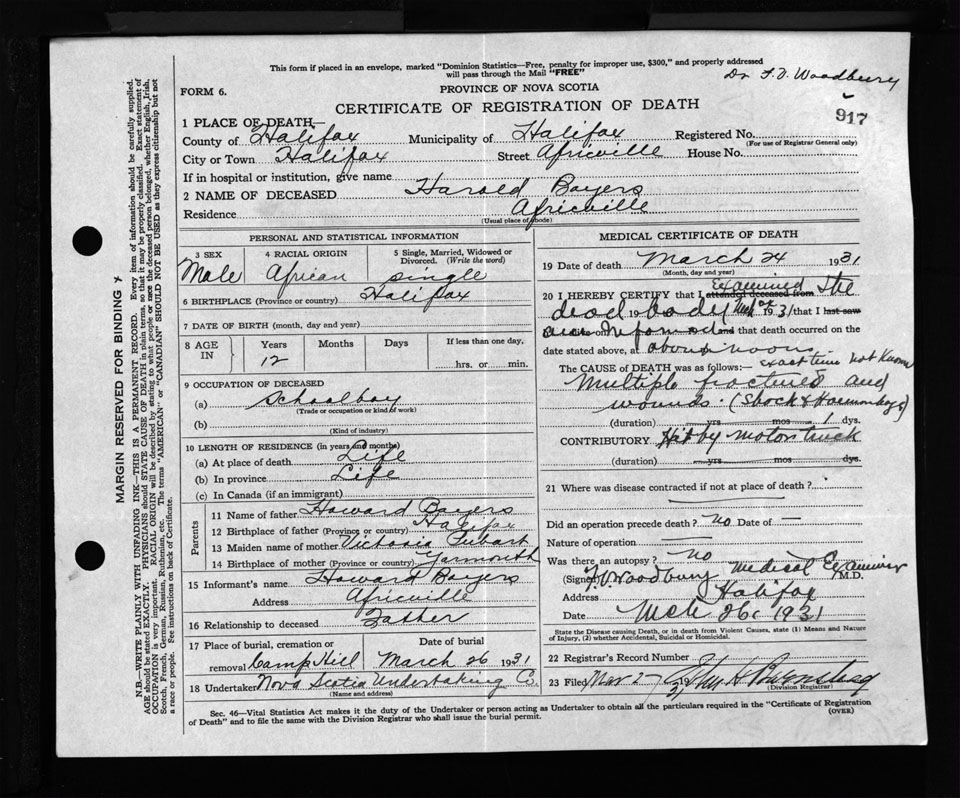 This form if placed in an envelope, marked "Dominion Statistics—Free, penalty for improper use, $300," and properly addressed
will pass through the Mail "FREE"
Dr. F. V. Woodbury
FORM 6.
PROVINCE OF NOVA SCOTIA
CERTIFICATE OF REGISTRATION OF DEATH
917
1 PLACE OF DEATH—
County of Halifax Municipality of Halifax Registered No.
(For use of Registrar General only)
City or Town Halifax Street Africville House No.
If in hospital or institution, give name
2 NAME OF DECEASED Harold Bayers
Residence Africville
(Usual place of abode)
PERSONAL AND STATISTICAL INFORMATION
3 SEX 4 RACIAL ORIGIN 5 Single, Married, Widowed or Divorced. (Write the word)
Male African single
6 BIRTHPLACE (Province or country) Halifax
7 DATE OF BIRTH (month, day and year)
8 AGE IN Years Months Days If less than one day,
12 hrs. or min.
9 OCCUPATION OF DECEASED
(a) Schoolboy
(Trade or occupation or kind of work)
(b)
(Kind of industry)
10 LENGTH OF RESIDENCE (in years and months)
(a) At place of death Life
(b) In province Life
(c) In Canada (if an immigrant)
Parents
11 Name of father Howard Bayers
12 Birthplace of father (Province or country) Halifax
13 Maiden name of mother Victoria
14 Birthplace of mother (Province or country) Yarmouth
15 Informant's name Howard Bayers
Address Africville
16 Relationship to deceased Father
17 Place of burial, cremation or Date of burial
removal Camp Hill March 26 1931
18 Undertaker Nova Scotia Undertaking Co.
(Name and address)
MEDICAL CERTIFICATE OF DEATH
19 Date of death March 24 1931
(Month, day and year)
examined the
20 I HEREBY CERTIFY that I attended deceased from
dead body 19 Mch 193 1 that I last saw
on and that death occurred on the
date stated above, at about noon exact time not known
The CAUSE OF DEATH was as follows:—
Multiple fractures and
wounds. (Shock & Haemorrhage)
(duration) yrs mos 1 dys.
CONTRIBUTORY Hit by motor truck
(duration) yrs mos dys.
21 Where was disease contracted if not at place of death?
Did an operation precede death? no Date of —
Nature of operation —
Was there an autopsy? no
(Signed) F. V. Woodbury Medical Examiner M.D.
Address Halifax
Date Mch 26 1931
State the Disease causing Death, or in death from Violent Causes, state (1) Means and Nature
of Injury, (2) whether Accidental, Suicidal or Homicidal.
22 Registrar's Record Number
23 Filed Mar 27 31
(Division Registrar)
Sec. 46—Vital Statistics Act makes it the duty of the Undertaker or person acting as Undertaker to obtain all the particulars required in the "Certificate of Registration
of Death" and to file the same with the Division Registrar who shall issue the burial permit.
(OVER)
MARGIN RESERVED FOR BINDING
N.B.—WRITE PLAINLY WITH UNFADING INK—THIS IS A PERMANENT RECORD. Every item of information should be carefully supplied.
AGE should be stated EXACTLY. PHYSICIANS should STATE CAUSE OF DEATH in plain terms, so that it may be properly classified. Exact statement of
OCCUPATION is very important. RACIAL ORIGIN will be described by stating to what people or race the deceased person belonged, whether English, Irish,
Scotch, French, German, Russian, Ruthenian, etc. The terms "AMERICAN" or "CANADIAN" SHOULD NOT BE USED as they express citizenship but not
a race or people. See instructions on back of Certificate.